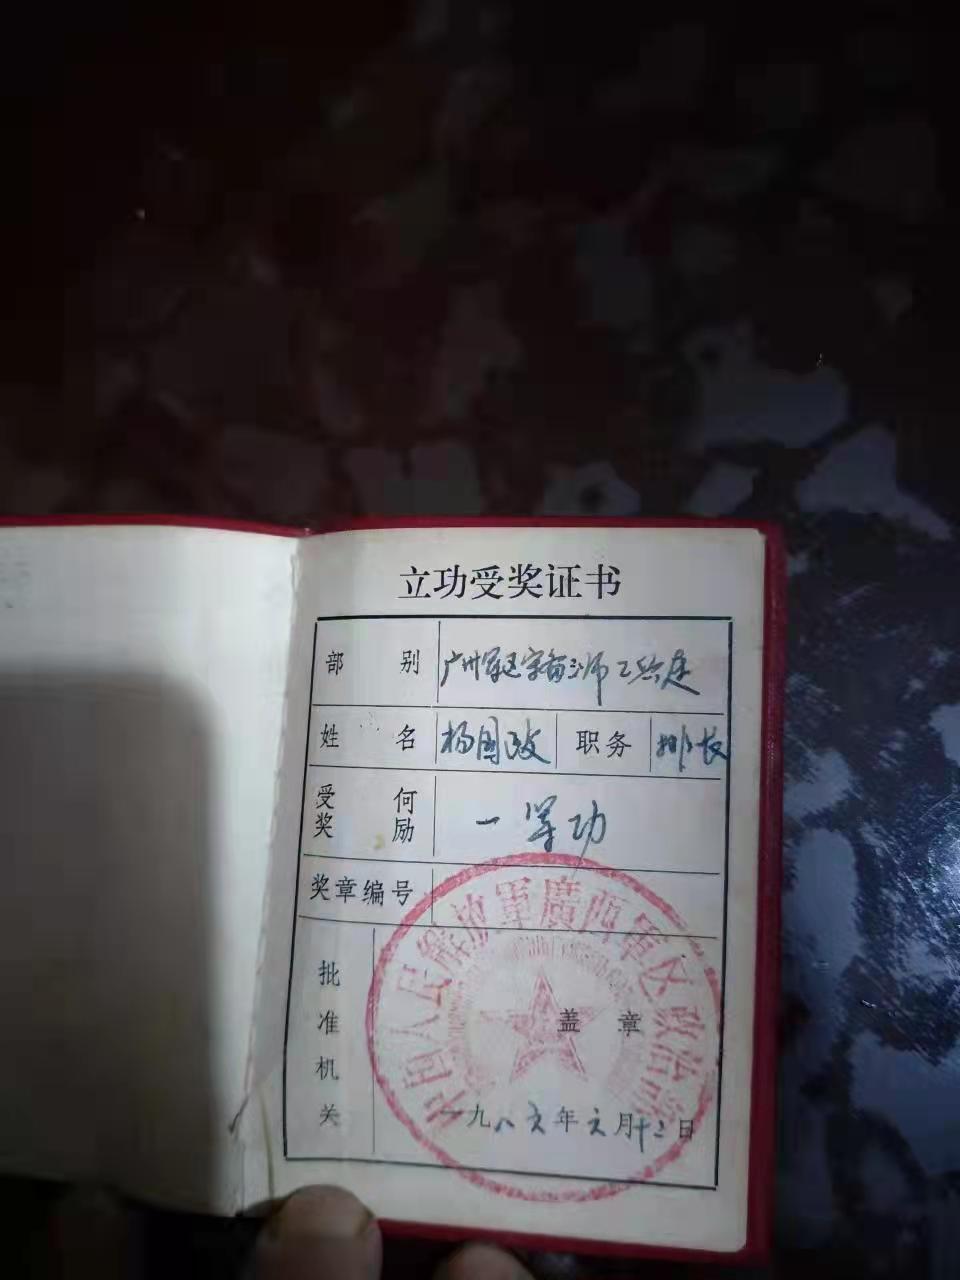 立功受奖证书
部别 广州军区守备三师工兵连
姓名 杨国政 职务 排长
受何奖励 一等功
奖章编号
批准机关
中国人民解放军廣西军区政治部
盖章
一九八六年六月十二日